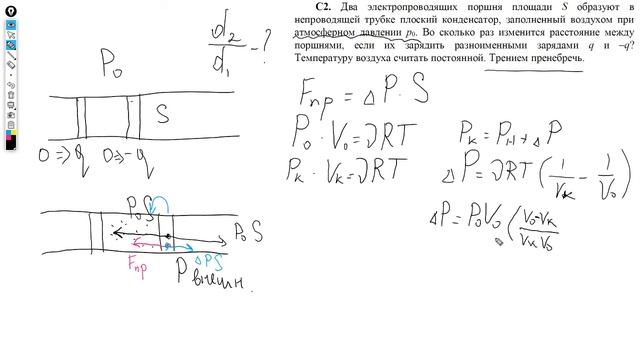 С2. Два электропроводящих поршня площади S образуют в
непроводящей трубке плоский конденсатор, заполненный воздухом при
атмосферном давлении p₀. Во сколько раз изменится расстояние между
поршнями, если их зарядить разноименными зарядами q и –q?
Температуру воздуха считать постоянной. Трением пренебречь.
d₂/d₁ - ?
P₀
S
0 => q 0 => -q
Fпр = ΔP · S
P₀ · V₀ = νRT
Pк = Pн + ΔP
Pк · Vк = νRT
ΔP = νRT (1/Vк - 1/V₀)
ΔP = P₀V₀ (V₀-Vк/VкV₀
P₀S
P₀S
Fпр
ΔPS
P внешн.